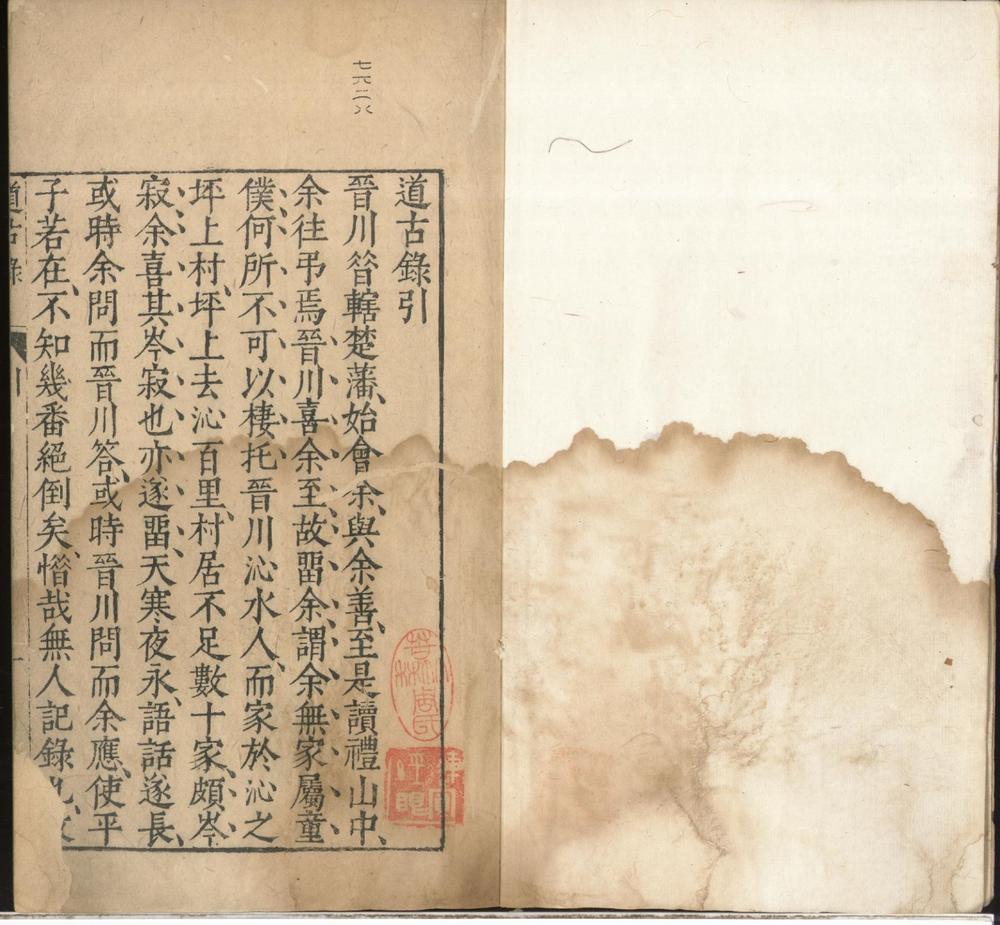 七六二八
道古錄引
晉川昝轄楚藩、始會余、與余善、至是讀禮山中、
余往弔焉、晉川喜余至、故畱余、謂余無家屬童
僕、何所不可以棲托、晉川沁水人、而家於沁之
坪上村、坪上去沁百里、村居不足數十家、頗岑
寂、余喜其岑寂也、亦遂畱、天寒夜永、語話遂長、
或時余問而晉川答、或時晉川問而余應、使平
子若在、不知幾番絕倒矣、惜哉無人記錄
道古錄 引 一